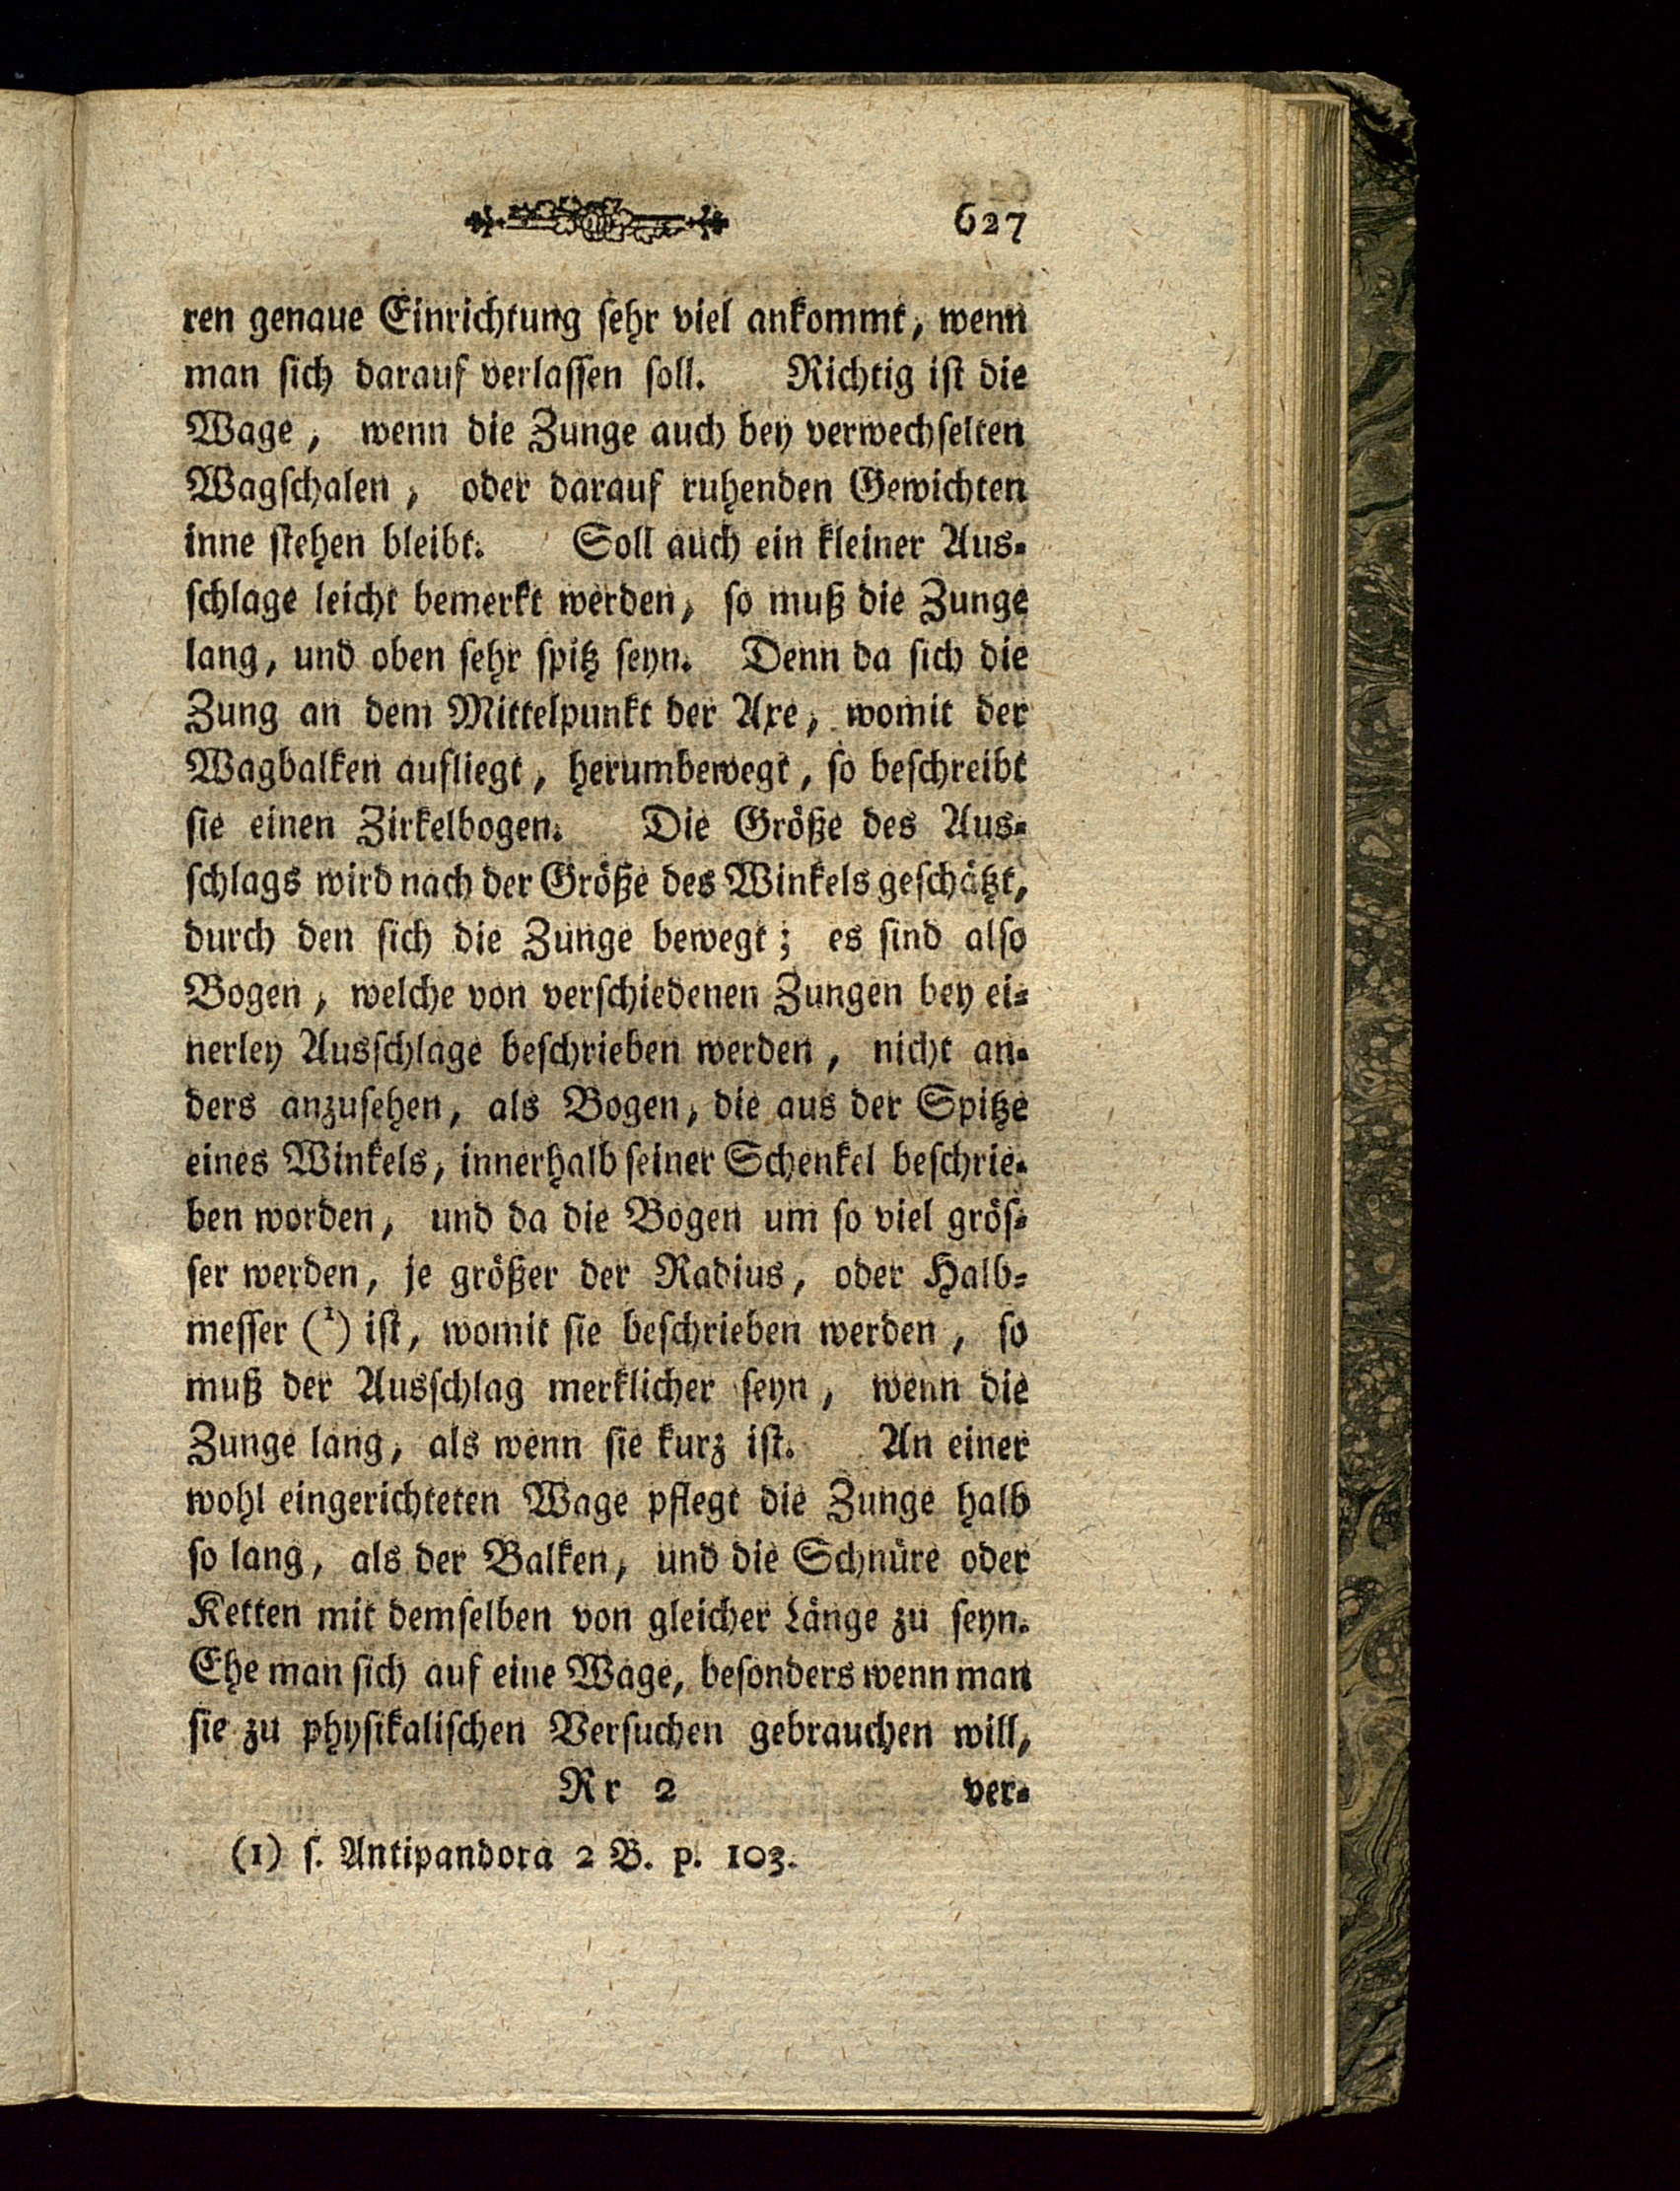 627
ren genaue Einrichtung ſehr viel ankommt, wenn
man ſich darauf verlaſſen ſoll. Richtig iſt die
Wage, wenn die Zunge auch bey verwechſelten
Wagſchalen, oder darauf ruhenden Gewichten
inne ſtehen bleibt. Soll auch ein kleiner Aus-
ſchlage leicht bemerkt werden, ſo muß die Zunge
lang, und oben ſehr ſpitz ſeyn. Denn da ſich die
Zung an dem Mittelpunkt der Axe, womit der
Wagbalken aufliegt, herumbewegt, ſo beſchreibt
ſie einen Zirkelbogen. Die Größe des Aus-
ſchlags wird nach der Größe des Winkels geſchätzt,
durch den ſich die Zunge bewegt; es ſind alſo
Bogen, welche von verſchiedenen Zungen bey ei-
nerley Ausſchlage beſchrieben werden, nicht an-
ders anzuſehen, als Bogen, die aus der Spitze
eines Winkels, innerhalb ſeiner Schenkel beſchrie-
ben worden, und da die Bogen um ſo viel gröſ-
ſer werden, je größer der Radius, oder Halb-
meſſer (¹) iſt, womit ſie beſchrieben werden, ſo
muß der Ausſchlag merklicher ſeyn, wenn die
Zunge lang, als wenn ſie kurz iſt. An einer
wohl eingerichteten Wage pflegt die Zunge halb
ſo lang, als der Balken, und die Schnüre oder
Ketten mit demſelben von gleicher Länge zu ſeyn.
Ehe man ſich auf eine Wage, beſonders wenn man
ſie zu phyſikaliſchen Verſuchen gebrauchen will,
Rr 2 ver-
(1) ſ. Antipandora 2 B. p. 103.